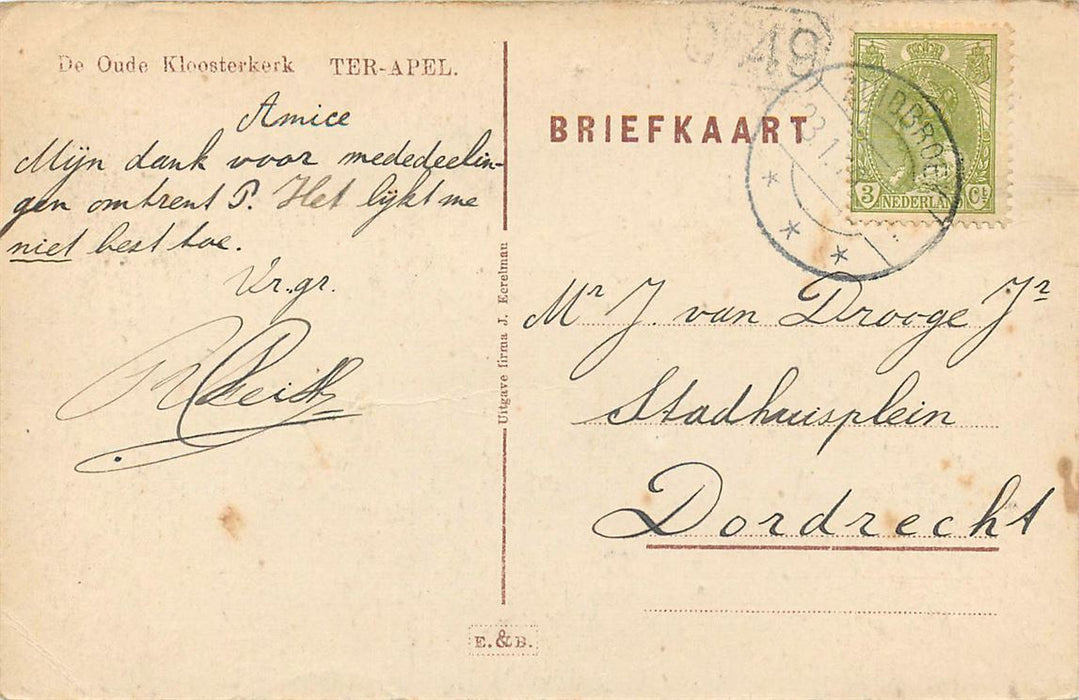 De Oude Kloosterkerk TER-APEL.
Amice
Mijn dank voor mededeelin-
gen omtrent P. Het lijkt me
niet best toe.
Vr. gr.
Uitgave firma J. Eerelman
BRIEFKAART
49
23.1.
3 NEDERLAND Ct
Mr J. van Drooge Jr
Stadhuisplein
Dordrecht
E. & B.